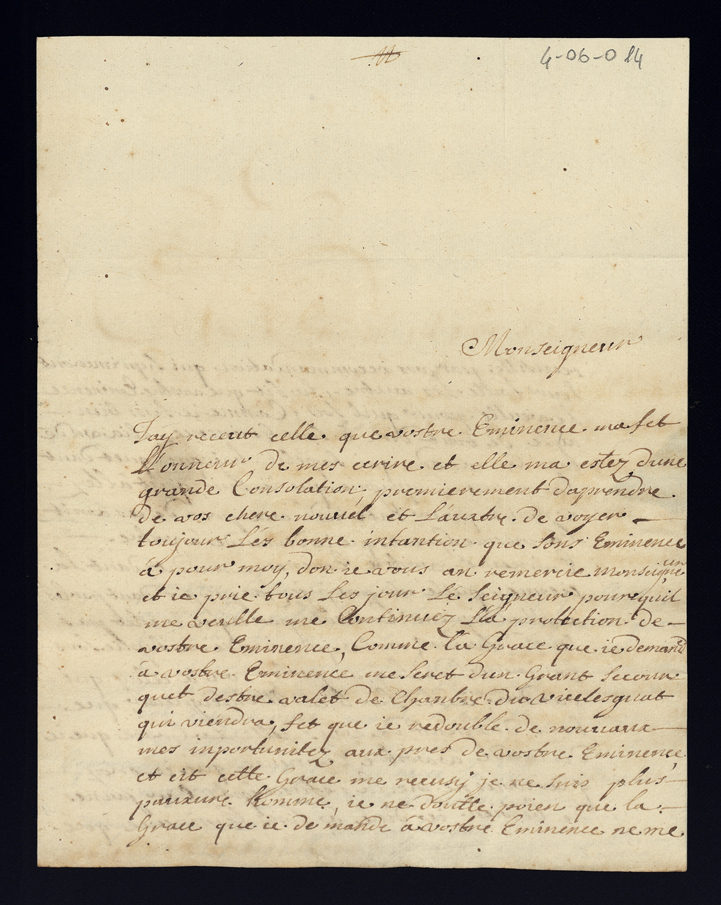 4-06-084
Monseigneur
Jay receut celle que vostre Eminence ma fet
l'onneur de mes ecrire et elle ma estez dune
grande Consolation, premierement daprendre
de vos chere nouuel et L'auttre de voyer
toujour Lés bonne intantion que sons Eminence
a pour moy, don ie vous an remercie monseigneur
et ie prie tous Les jour Le Seigneur pourequil
me veulle me Continuez La protection de
vostre Eminence, Comme la Grace que ie demand
à vostre Eminence me Seret dun Grant Secour
quet destre valet de Chanbre du vicelesguat
qui viendra, fet que ie redouble de nouueaux
mes inportunitez aux pres de vostre Eminence
et cit cette Grace me reusy je ne suis plus
pauure homme, ie ne doutte poien que la
Grace que ie de mande a vostre Eminence ne me